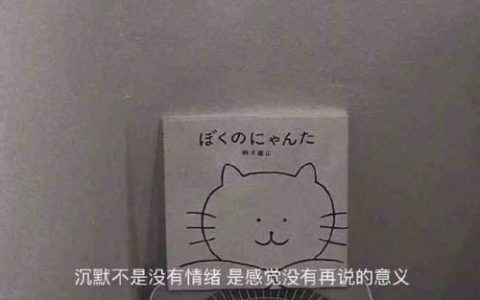 ぼくのにゃんた
鈴木康広
沉默不是没有情绪 是感觉没有再说的意义